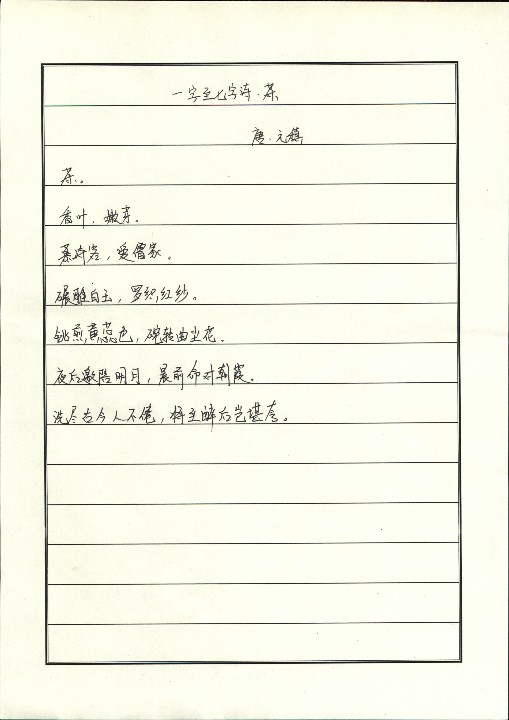 一字至七字诗·茶
唐·元稹
茶。
香叶，嫩芽。
慕诗客，爱僧家。
碾雕白玉，罗织红纱。
铫煎黄蕊色，碗转曲尘花。
夜后邀陪明月，晨前命对朝霞。
洗尽古今人不倦，将至醉后岂堪夸。